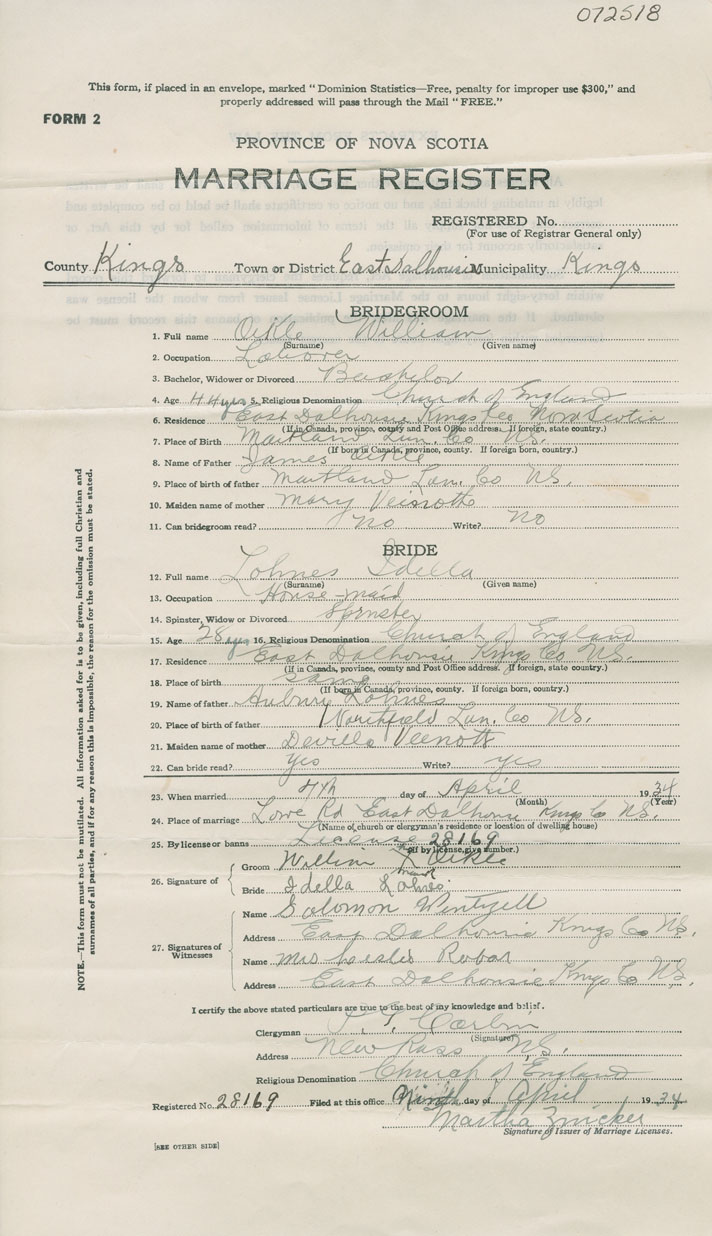 072518
This form, if placed in an envelope, marked "Dominion Statistics—Free, penalty for improper use $300," and
properly addressed will pass through the Mail "FREE."
FORM 2
PROVINCE OF NOVA SCOTIA
MARRIAGE REGISTER
REGISTERED No.
(For use of Registrar General only)
County Kings Town or District East Dalhousie Municipality Kings
BRIDEGROOM
1. Full name Oikle William
(Surname) (Given name)
2. Occupation Laborer
3. Bachelor, Widower or Divorced Bachelor
4. Age 44 yrs 5. Religious Denomination Church of England
6. Residence East Dalhousie Kings Co Nova Scotia
(If in Canada, province, county and Post Office address. If foreign, state country.)
7. Place of Birth Maitland Lun. Co NS.
(If born in Canada, province, county. If foreign born, country.)
8. Name of Father James Oikle
9. Place of birth of father Maitland Lun. Co NS.
10. Maiden name of mother Mary
11. Can bridegroom read? No Write? No
BRIDE
12. Full name Lohnes Idella
(Surname) (Given name)
13. Occupation House-maid
14. Spinster, Widow or Divorced Spinster
15. Age 28 yrs 16. Religious Denomination Church of England
17. Residence East Dalhousie Kings Co NS.
(If in Canada, province, county and Post Office address. If foreign, state country.)
18. Place of birth Same
(If born in Canada, province, county. If foreign born, country.)
19. Name of father Aubury Lohnes
20. Place of birth of father Northfield Lun. Co NS.
21. Maiden name of mother Devilla Veinott
22. Can bride read? Yes Write? yes
23. When married 4th day of April 1934
(Month) (Year)
24. Place of marriage Lowe Rd East Dalhousie Kings Co N.S.
(Name of church or clergyman's residence or location of dwelling house)
25. By license or banns License 28169
(If by license, give number.)
26. Signature of
Groom William his X mark Oikle
Bride Idella Lohnes
27. Signatures of Witnesses
Name Solomon Wentzell
Address East Dalhousie Kings Co NS.
Name Mrs Leslie Robar
Address East Dalhousie Kings Co NS.
I certify the above stated particulars are true to the best of my knowledge and belief.
Clergyman
(Signature)
Address New Ross NS.
Religious Denomination Church of England
Registered No. 28169 Filed at this office Ninth day of April 1934
Martha Zwicker
Signature of Issuer of Marriage Licenses.
[SEE OTHER SIDE]
NOTE.—This form must not be mutilated. All information asked for is to be given, including full Christian and
surnames of all parties, and if for any reason this is impossible, the reason for the omission must be stated.